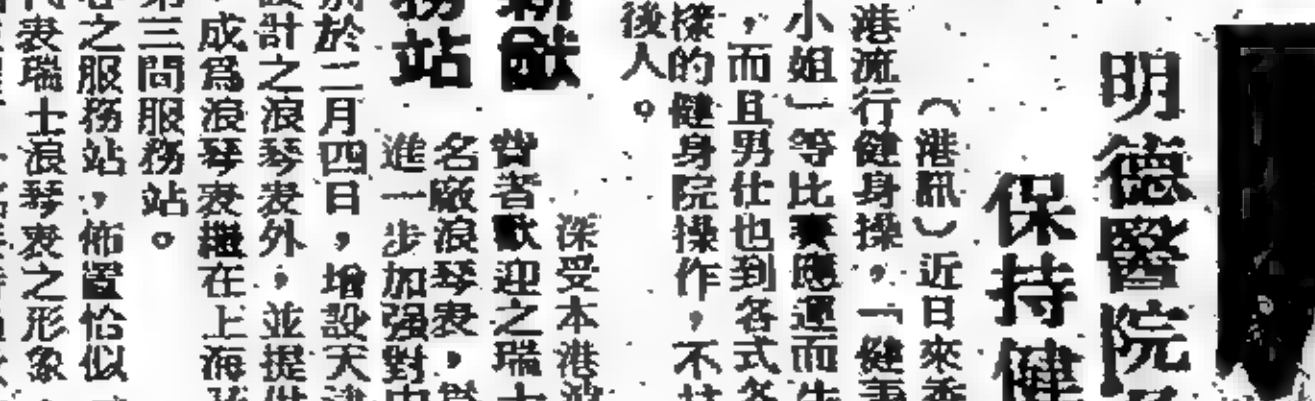 明德醫院
保持健
（港訊）近日來香
港流行健身操，「健事
小姐」等比賽應運而生
，而且男仕也到各式各
樣的健身院操作，不甘
後人。
務站
深受本港
費者歡迎之瑞士
名廠浪琴表，爲
進一步加强對中
於二月四日，增設天津
設計之浪琴表外，並提供
成爲浪琴表繼在上海
第三間服務站。
之服務站，佈置恰似
表瑞士浪琴表之形象